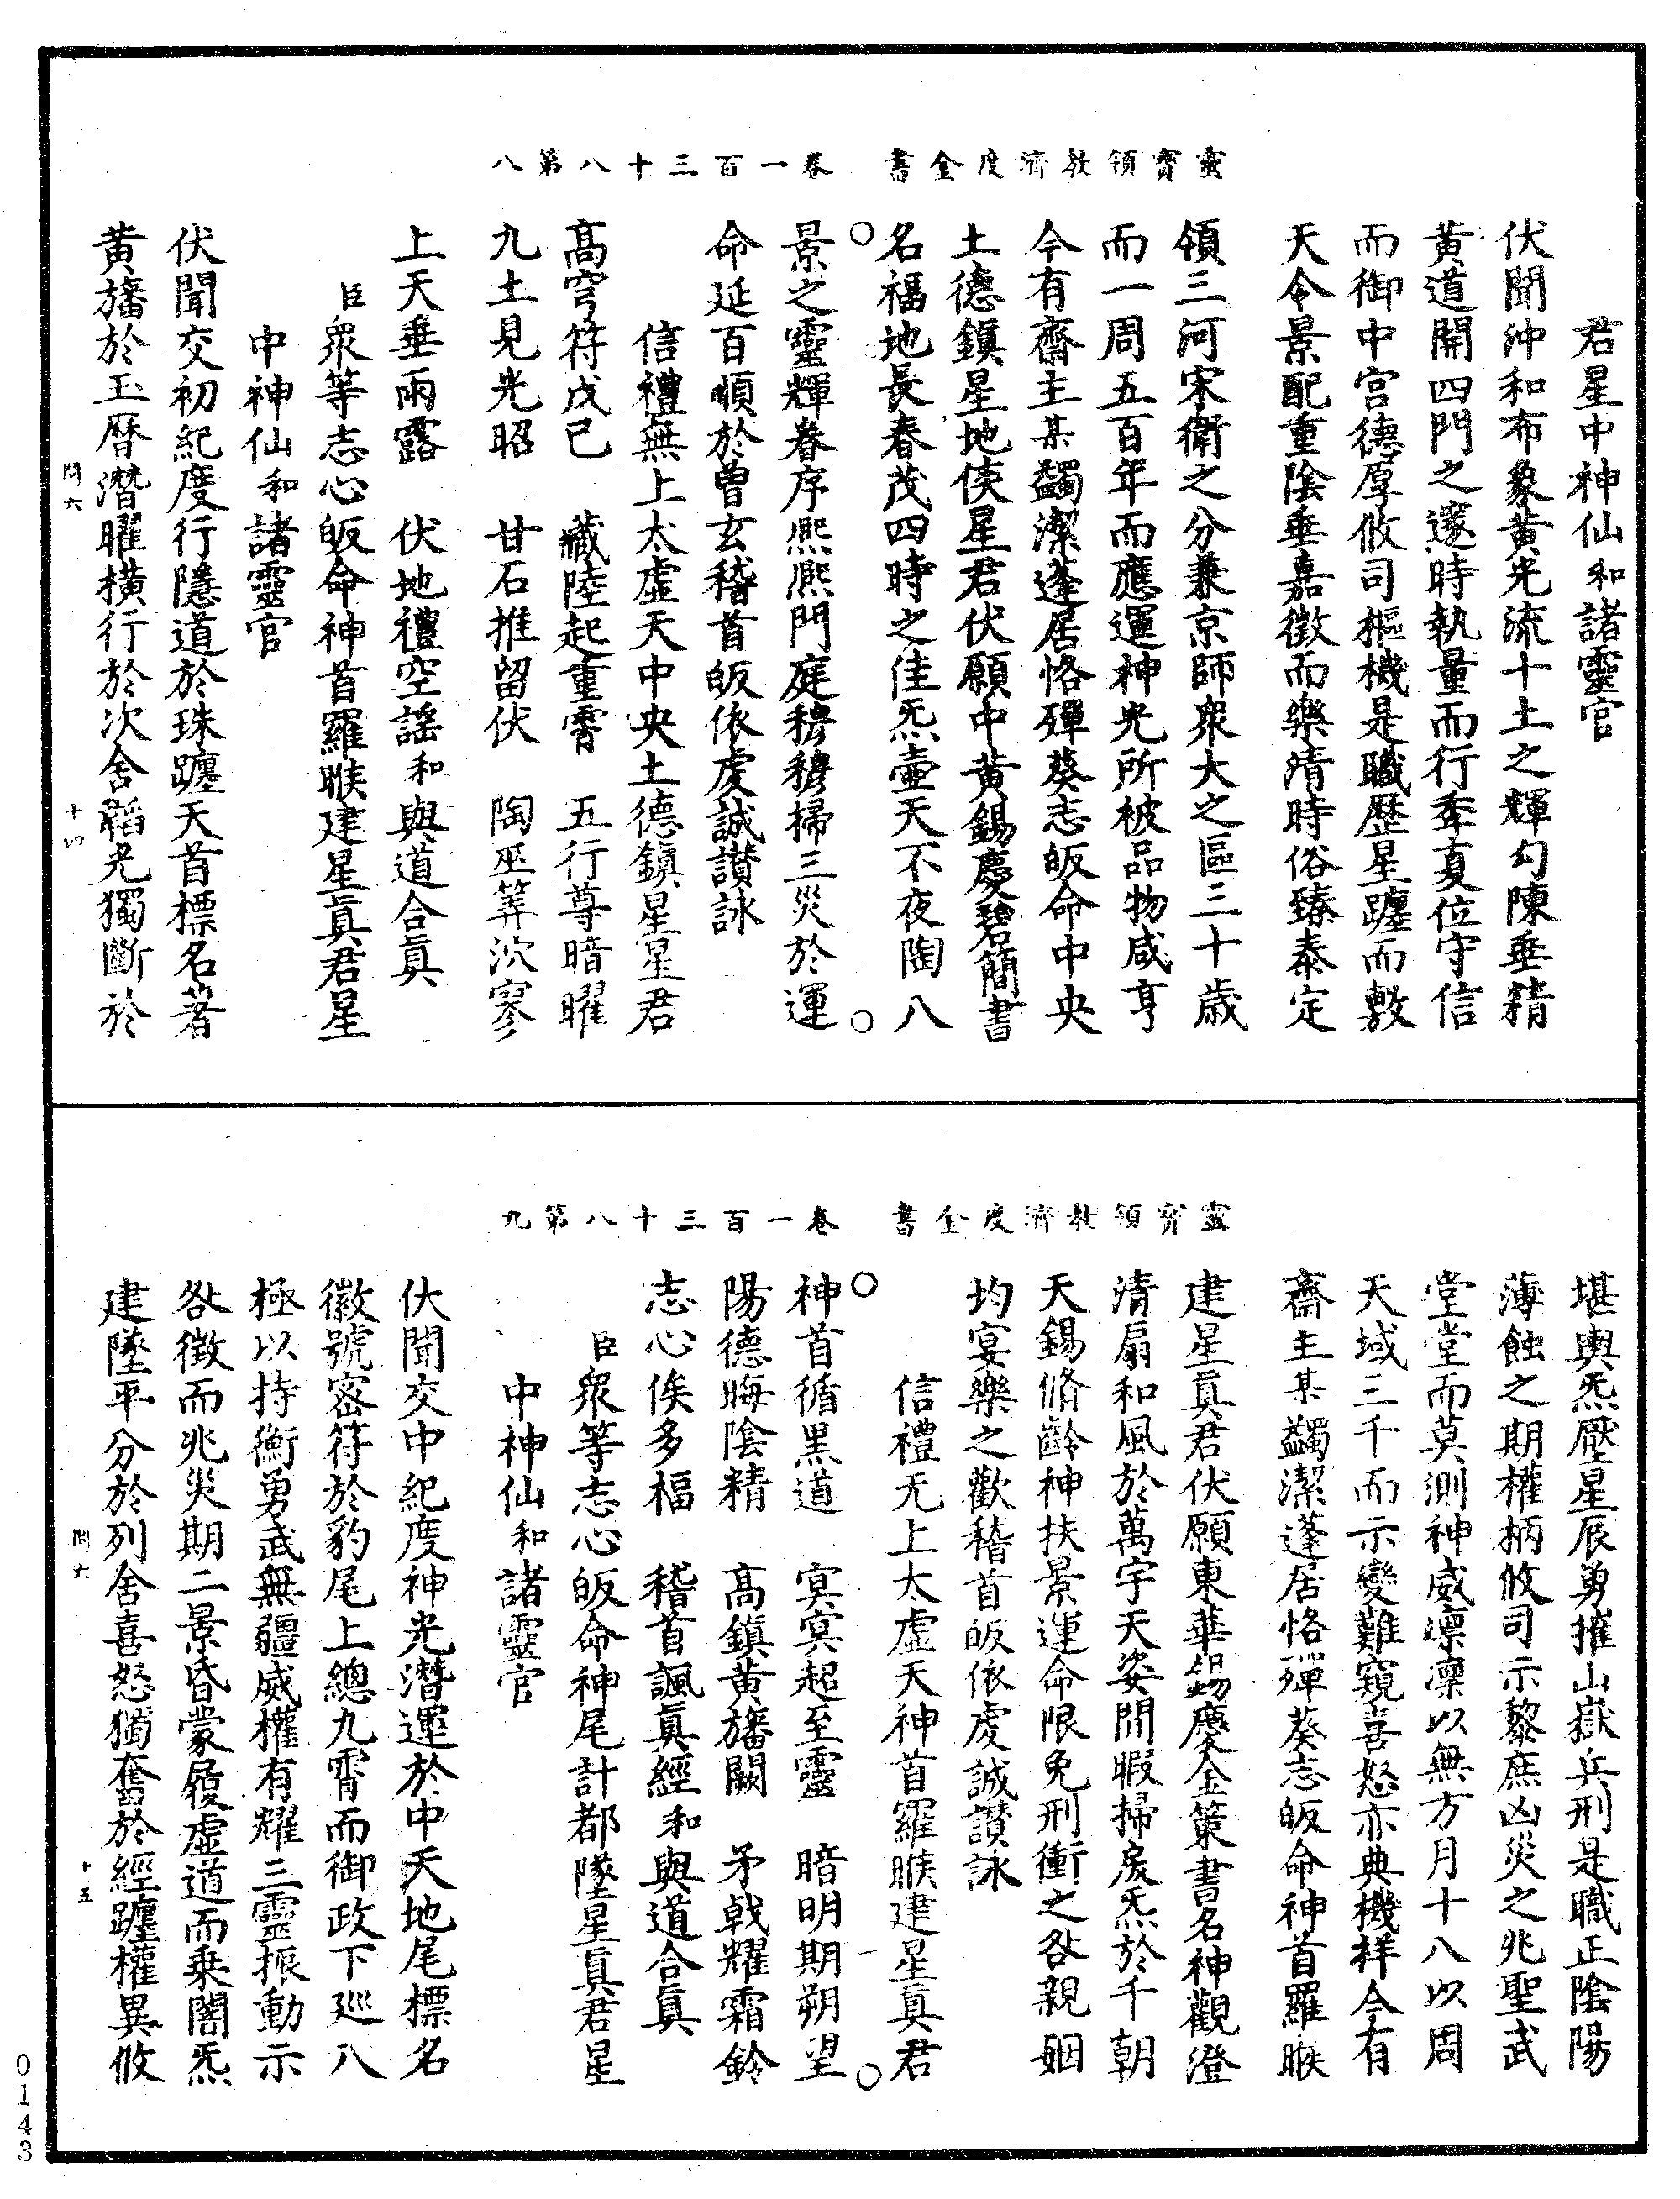 靈寶領教濟度金書　卷一百三十八第八
君星中神仙和諸靈官
伏聞沖和布象黃光流十土之輝勾陳垂精
黃道開四門之邃時執量而行季夏位守信
而御中宮德厚攸司樞機是職歷星躔而敷
天令景配重陰垂嘉徵而樂清時俗臻泰定
領三河宋衛之分兼京師衆大之區三十歲
而一周五百年而應運神光所被品物咸亨
今有齋主某蠲潔蓬居恪殫葵志皈命中央
土德鎮星地侯星君伏願中黃錫慶碧簡書
名福地長春茂四時之佳炁壺天不夜陶八
景之靈輝眷序熈熈門庭穆穆掃三災於運
命延百順於曾玄稽首皈依虔誠讃詠
信禮無上太虛天中央土德鎮星星君
高穹符戊己　藏陸起重霄　五行尊暗曜
九土見光昭　甘石推留伏　陶巫筭泬寥
上天垂雨露　伏地禮空謡和與道合真
臣衆等志心皈命神首羅睺建星真君星
中神仙和諸靈官
伏聞交初紀度行隱道於珠躔天首標名著
黃旛於玉曆潛曜橫行於次舍韜光獨斷於
問六　十四
靈寶領教濟度金書　卷一百三十八第九
堪輿炁壓星辰勇摧山嶽兵刑是職正陰陽
薄蝕之期權柄攸司示黎庶凶災之兆聖武
堂堂而莫測神威凛凛以無方月十八以周
天域三千而示變難窺喜怒亦典機祥今有
齋主某蠲潔蓬居恪殫葵志皈命神首羅睺
建星真君伏願東華錫慶金策書名神觀澄
清扇和風於萬宇天姿閒暇掃戾炁於千朝
天錫脩齡神扶景運命限免刑衝之咎親姻
均宴樂之歡稽首皈依虔誠讃詠
信禮无上太虛天神首羅睺建星真君
神首循黑道　冥冥超至靈　暗明期朔望
陽德晦陰精　高鎮黃旛闕　矛戟耀霜鈴
志心俟多福　稽首諷真經和與道合真
臣衆等志心皈命神尾計都墜星真君星
中神仙和諸靈官
伏聞交中紀度神光潛運於中天地尾標名
徽號密符於豹尾上總九霄而御政下巡八
極以持衡勇武無疆威權有耀三靈振動示
咎徵而兆災期二景昏蒙履虛道而乗闇炁
建墜平分於列舍喜怒獨奮於經躔權異攸
問六　十五
0143